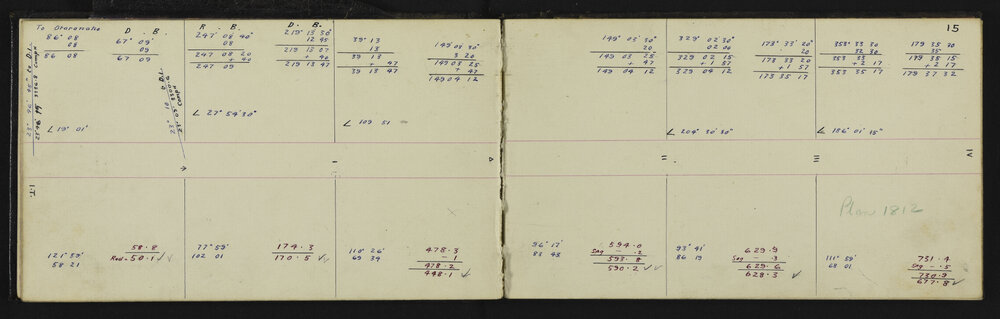 15
To Otorohake
D . B
R . B.
D . B.
86° 08
08
86 08
67° 09'
09
67 09
247° 08 40"
08
247 08 20
+ 40
247 09
219° 13 30"
12 45
219 13 07
+ 40
219 13 47
39° 13
13
39 13
+ 47
39 13 47
149° 08 30"
3 20
149 03 25
+ 47
149 04 12
149° 03' 30"
20
149 03 25
+ 47
149 04 12
329° 02 30"
02 00
329 02 15
+ 1 57
329 04 12
173° 33' 20"
20
173 33 20
+ 1 57
173 35 17
353° 33 30
32 30
353 33
+ 2 17
353 35 17
179 35 20
35
179 35 15
+ 2 17
179 37 32
∠ 19° 01'
∠ 27° 54' 30"
∠ 109 51
∠ 204° 30' 30"
∠ 186° 01' 15"
I.T.
I
II
III
IV
Plan 1812
121° 59'
58 21
58.8
Red - 50.1 ✓✓
77° 59'
102 01
174.3
170.5 ✓✓
110° 26'
69 34
478.3
- 1
478.2
448.1 ✓
96° 17'
83 43
594.0
Sag - .2
593.8
590.2 ✓✓
93° 41'
86 19
629.9
Sag - .3
629.6
628.3 ✓
111° 59'
68 01
731.4
Sag - .5
730.9
677.8 ✓